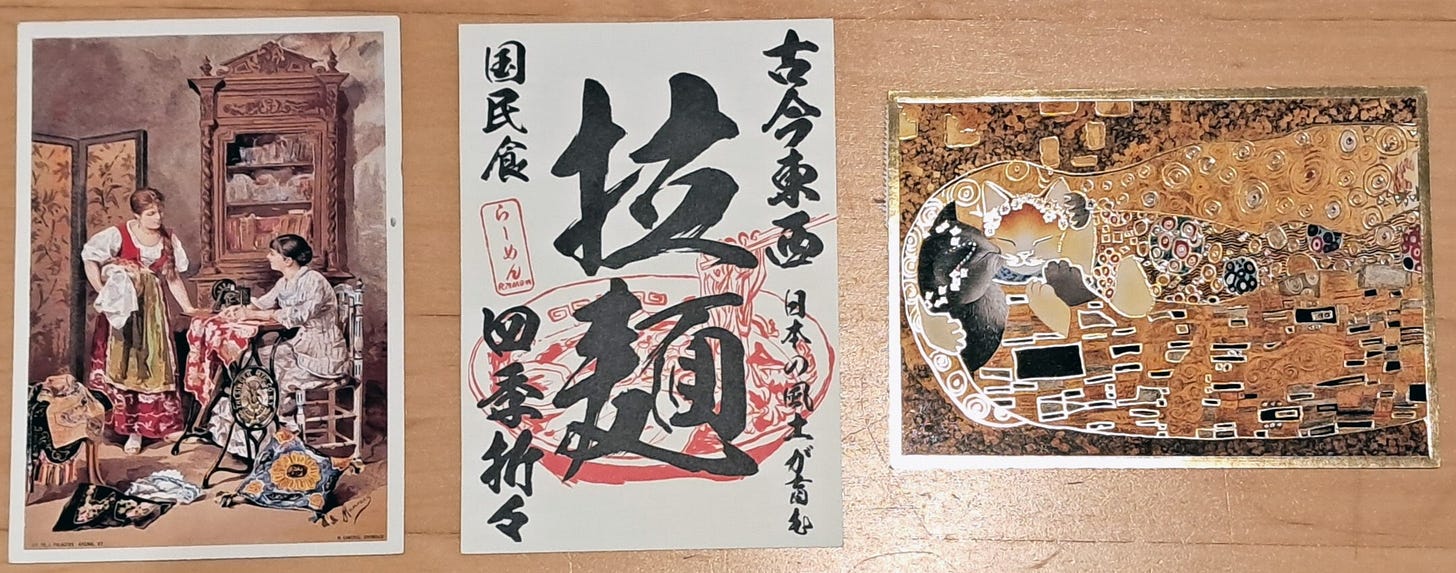 古今東西
日本の風土が育む
拉麺
国民食
らーめん
RAMEN
四季折々